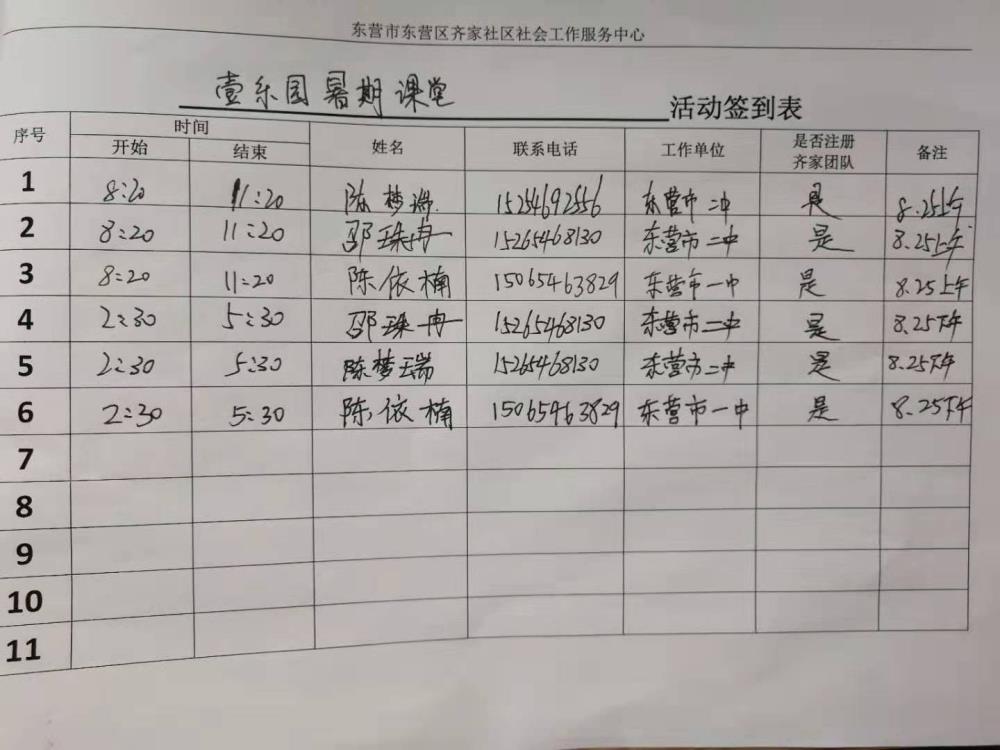 东营市东营区齐家社区社会工作服务中心
壹乐园暑期课堂 活动签到表
序号 时间 姓名 联系电话 工作单位 是否注册齐家团队 备注
开始 结束
1 8:20 11:20 陈梦瑞 15254692556 东营市二中 是 8.25上午
2 8:20 11:20 邵珠冉 15265468130 东营市二中 是 8.25上午
3 8:20 11:20 陈依楠 15065463829 东营市一中 是 8.25上午
4 2:30 5:30 邵珠冉 15265468130 东营市二中 是 8.25下午
5 2:30 5:30 陈梦瑞 15265468130 东营市二中 是 8.25下午
6 2:30 5:30 陈依楠 15065463829 东营市一中 是 8.25下午
7
8
9
10
11